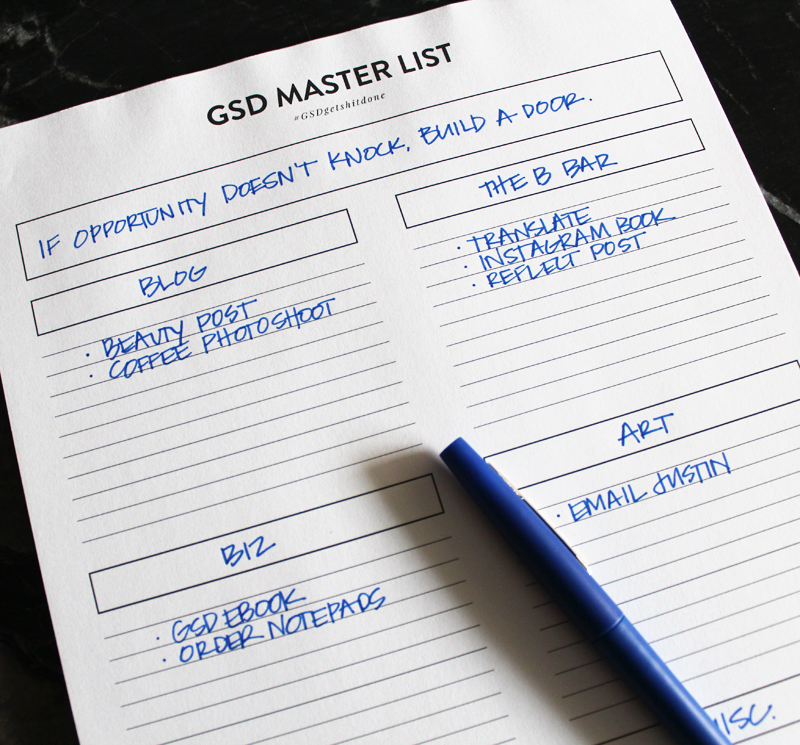 GSD MASTER LIST
#GSDgetshitdone
IF OPPORTUNITY DOESN'T KNOCK, BUILD A DOOR.
BLOG
· BEAUTY POST
· COFFEE PHOTOSHOOT
THE B BAR
· TRANSLATE
· INSTAGRAM BOOK
· REFLECT POST
BIZ
· GSD EBOOK
· ORDER NOTEPADS
ART
· EMAIL JUSTIN